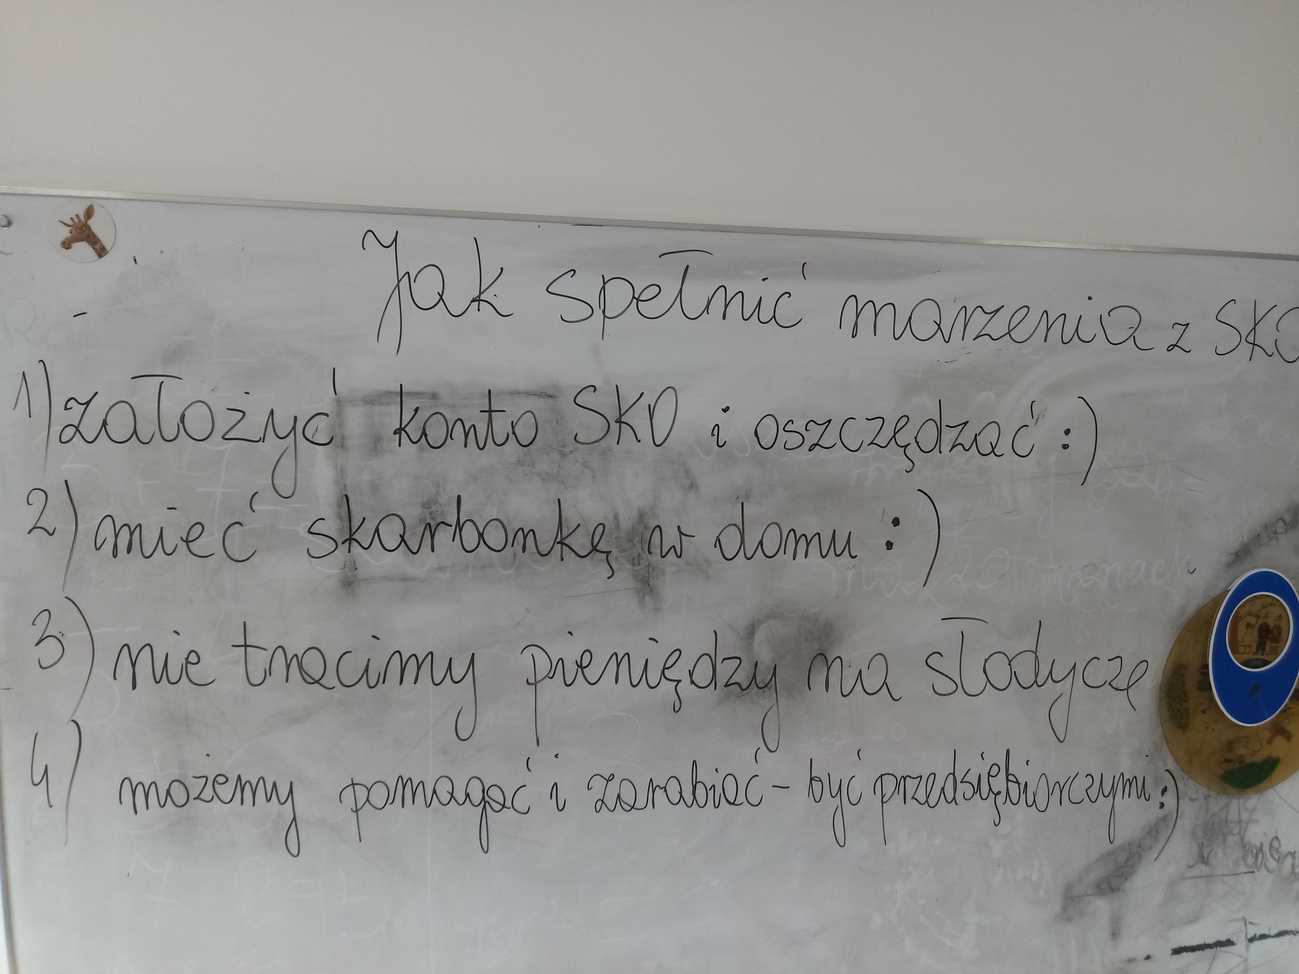 Jak spełnić marzenia z SKO
1) założyć konto SKO i oszczędzać :)
2) mieć skarbonkę w domu :)
3) nie tracimy pieniędzy na słodycze
4) możemy pomagać i zarabiać - być przedsiębiorczymi :)